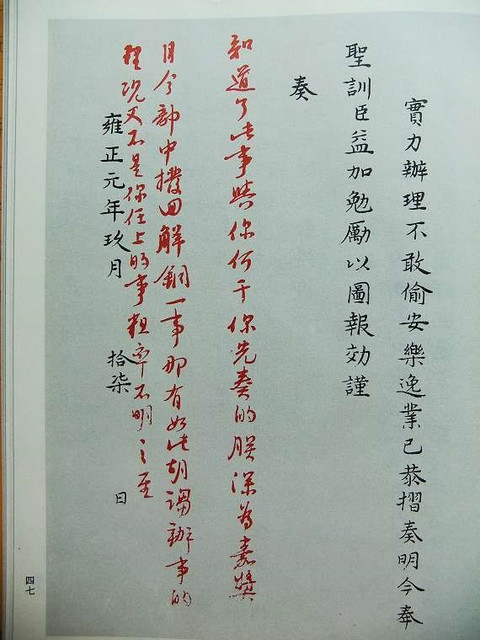 實力辦理不敢偷安樂逸業已恭摺奏明今奉
聖訓臣益加勉勵以圖報効謹
奏
知道了此事與你何干你先奏的朕深為嘉獎
目今部中撥回解銅一事那有如此胡謅辦事的
理況又不是你任上的事粗率不明之至
雍正元年玖月 拾柒 日
四七